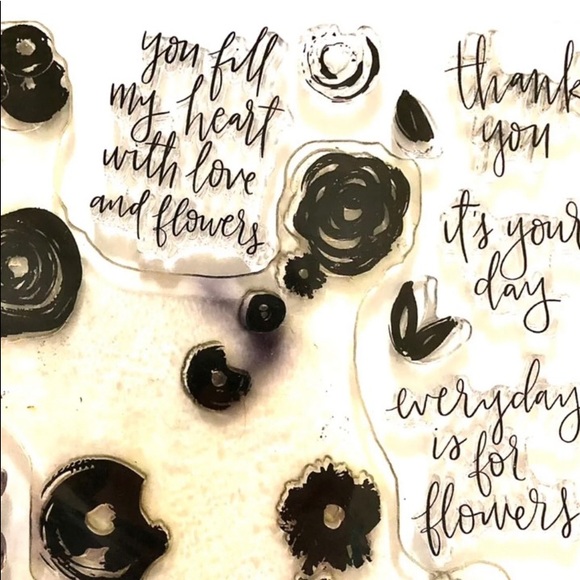 you fill
my heart
with love
and flowers
thank
you
it's your
day
everyday
is for
flowers